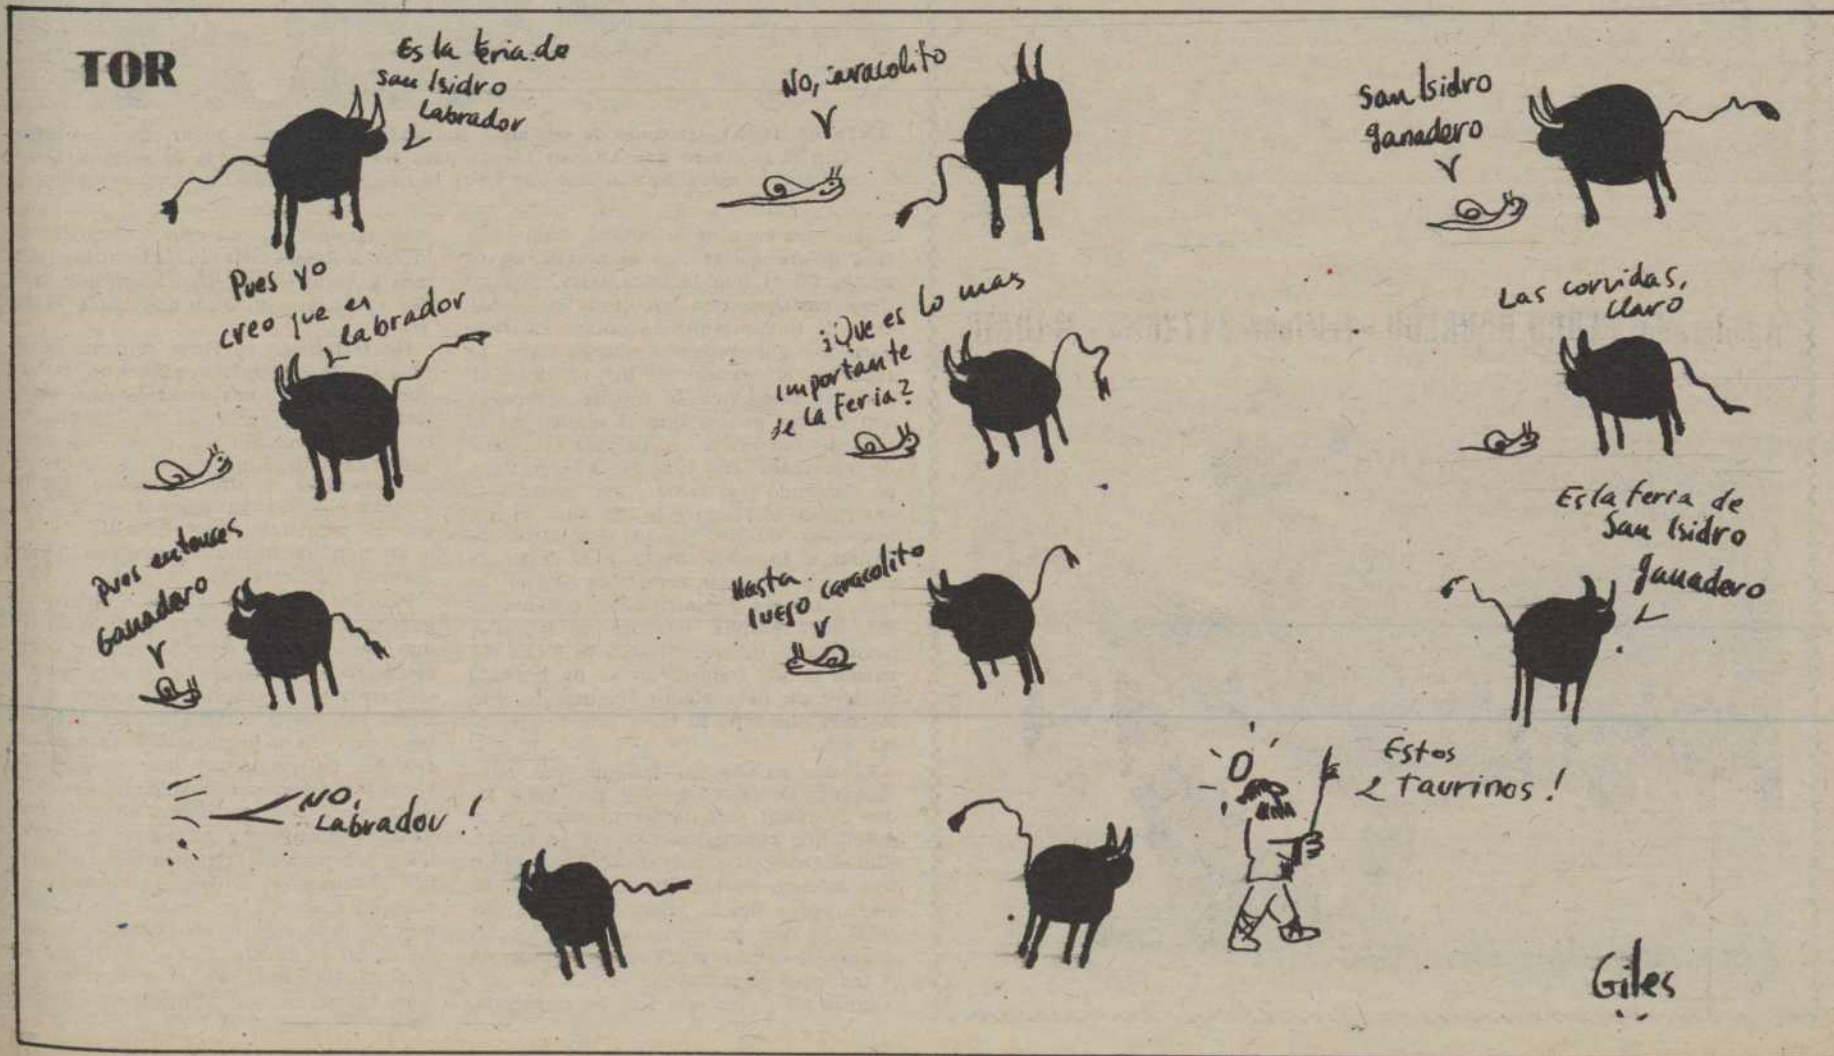 TOR
Es la feria de
San Isidro
Labrador
No, caracolito
San Isidro
ganadero
Pues yo
creo que es
Labrador
¿Que es lo mas
importante
de la Feria?
Las corridas,
claro
Pues entonces
Ganadero
Hasta
luego caracolito
Es la feria de
San Isidro
ganadero
NO,
Labrador!
Estos
Taurinos!
Giles